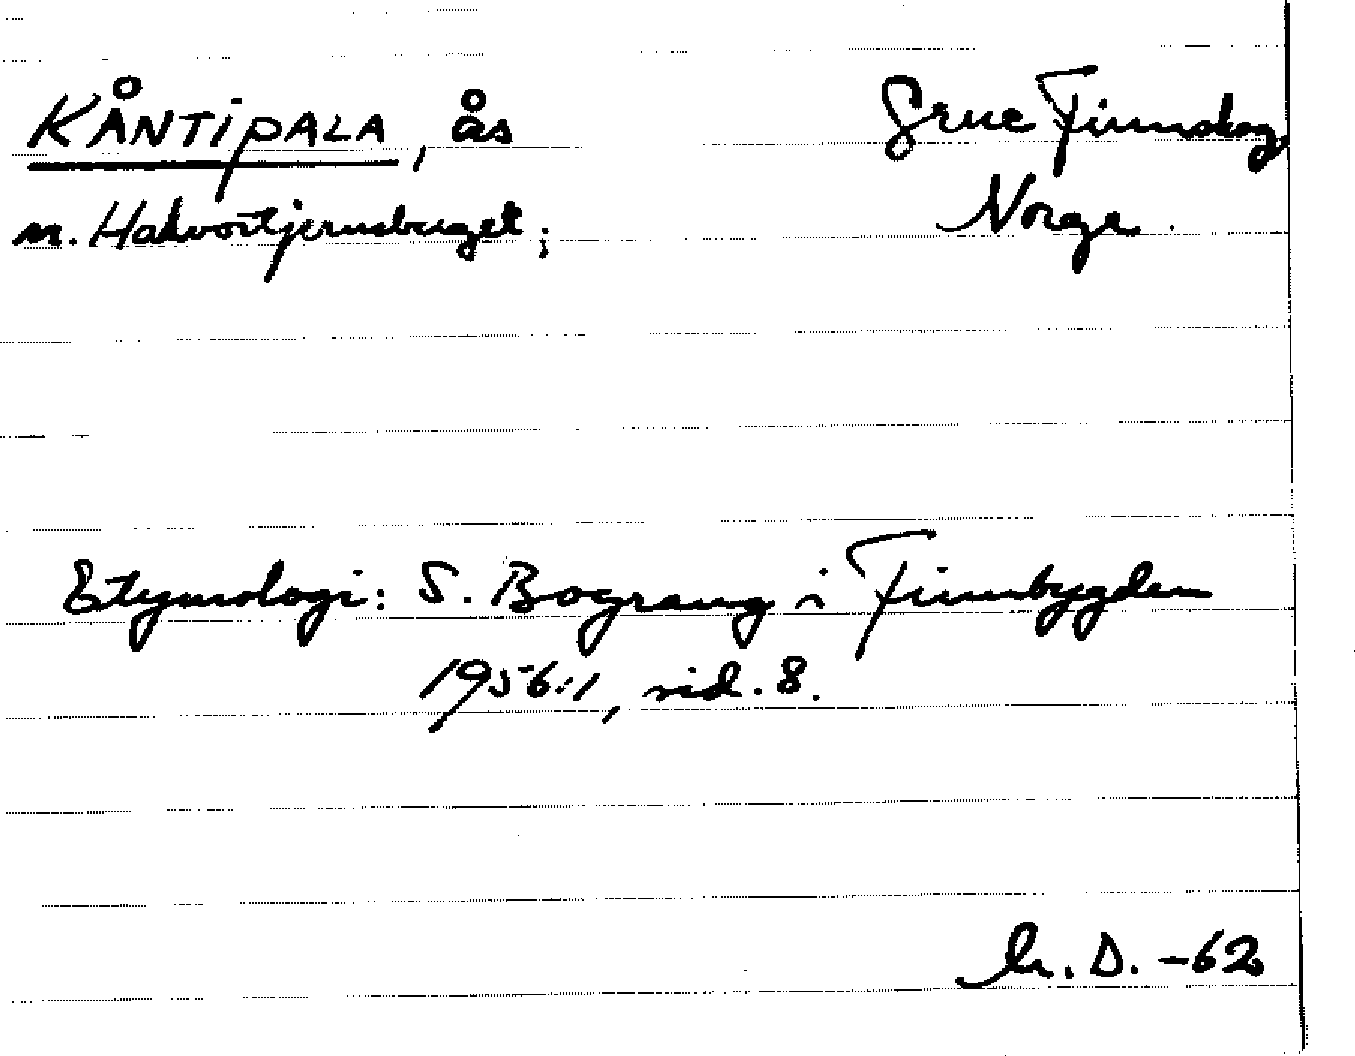 KÅNTiPALA, ås
Grue Finnskog
n. Halvortjernsberget;
Norge.
Etymologi: S. Bograng i Finnbygden
1956:1, sid. 8.
D. -62